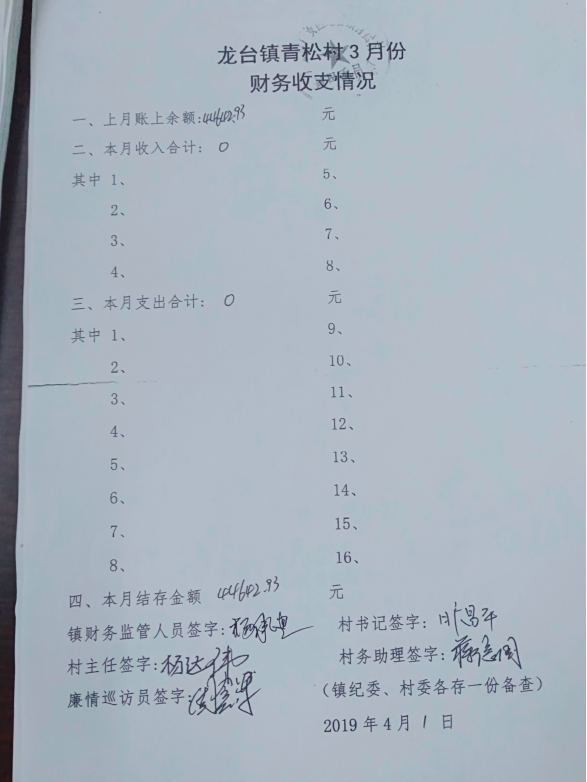 龙台镇青松村3月份
财务收支情况
一、上月账上余额:44642.93 元
二、本月收入合计: 0 元
其中 1、 5、
2、 6、
3、 7、
4、 8、
三、本月支出合计: 0 元
其中 1、 9、
2、 10、
3、 11、
4、 12、
5、 13、
6、 14、
7、 15、
8、 16、
四、本月结存金额 44642.93 元
镇财务监管人员签字: 村书记签字: 叶昌平
村主任签字: 村务助理签字:
廉情巡访员签字: (镇纪委、村委各存一份备查)
2019年4月1日